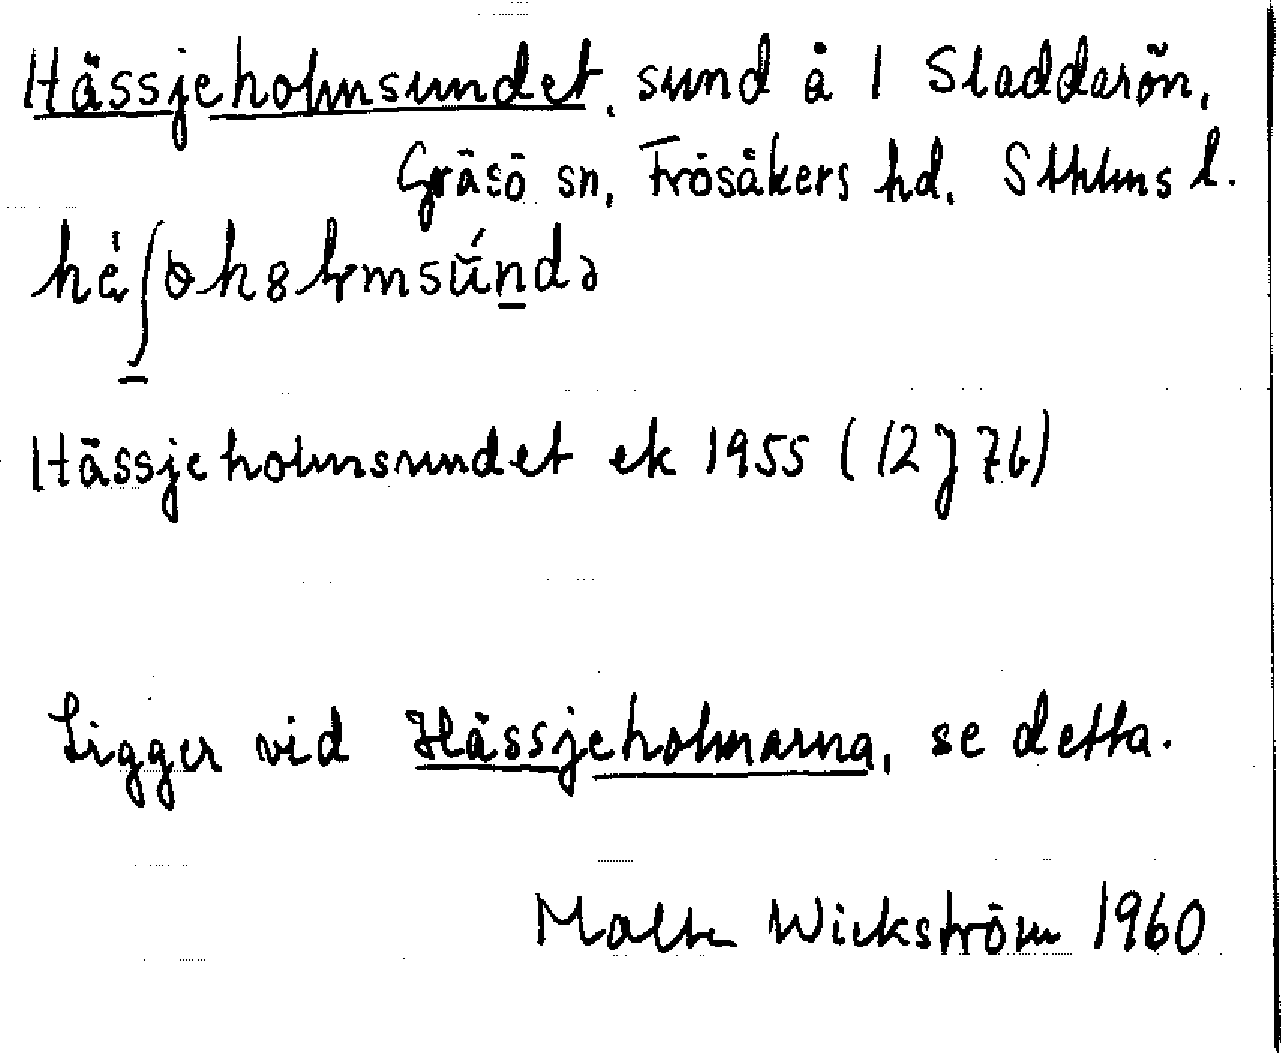 Hässjeholmsundet, sund å 1 Sladdarön,
Gräsö sn, Frösåkers hd, Sthlms l.
Hässjeholmsundet ek 1955 (12J 7b)
Ligger vid Hässjeholmarna, se detta.
Malte Wickström 1960